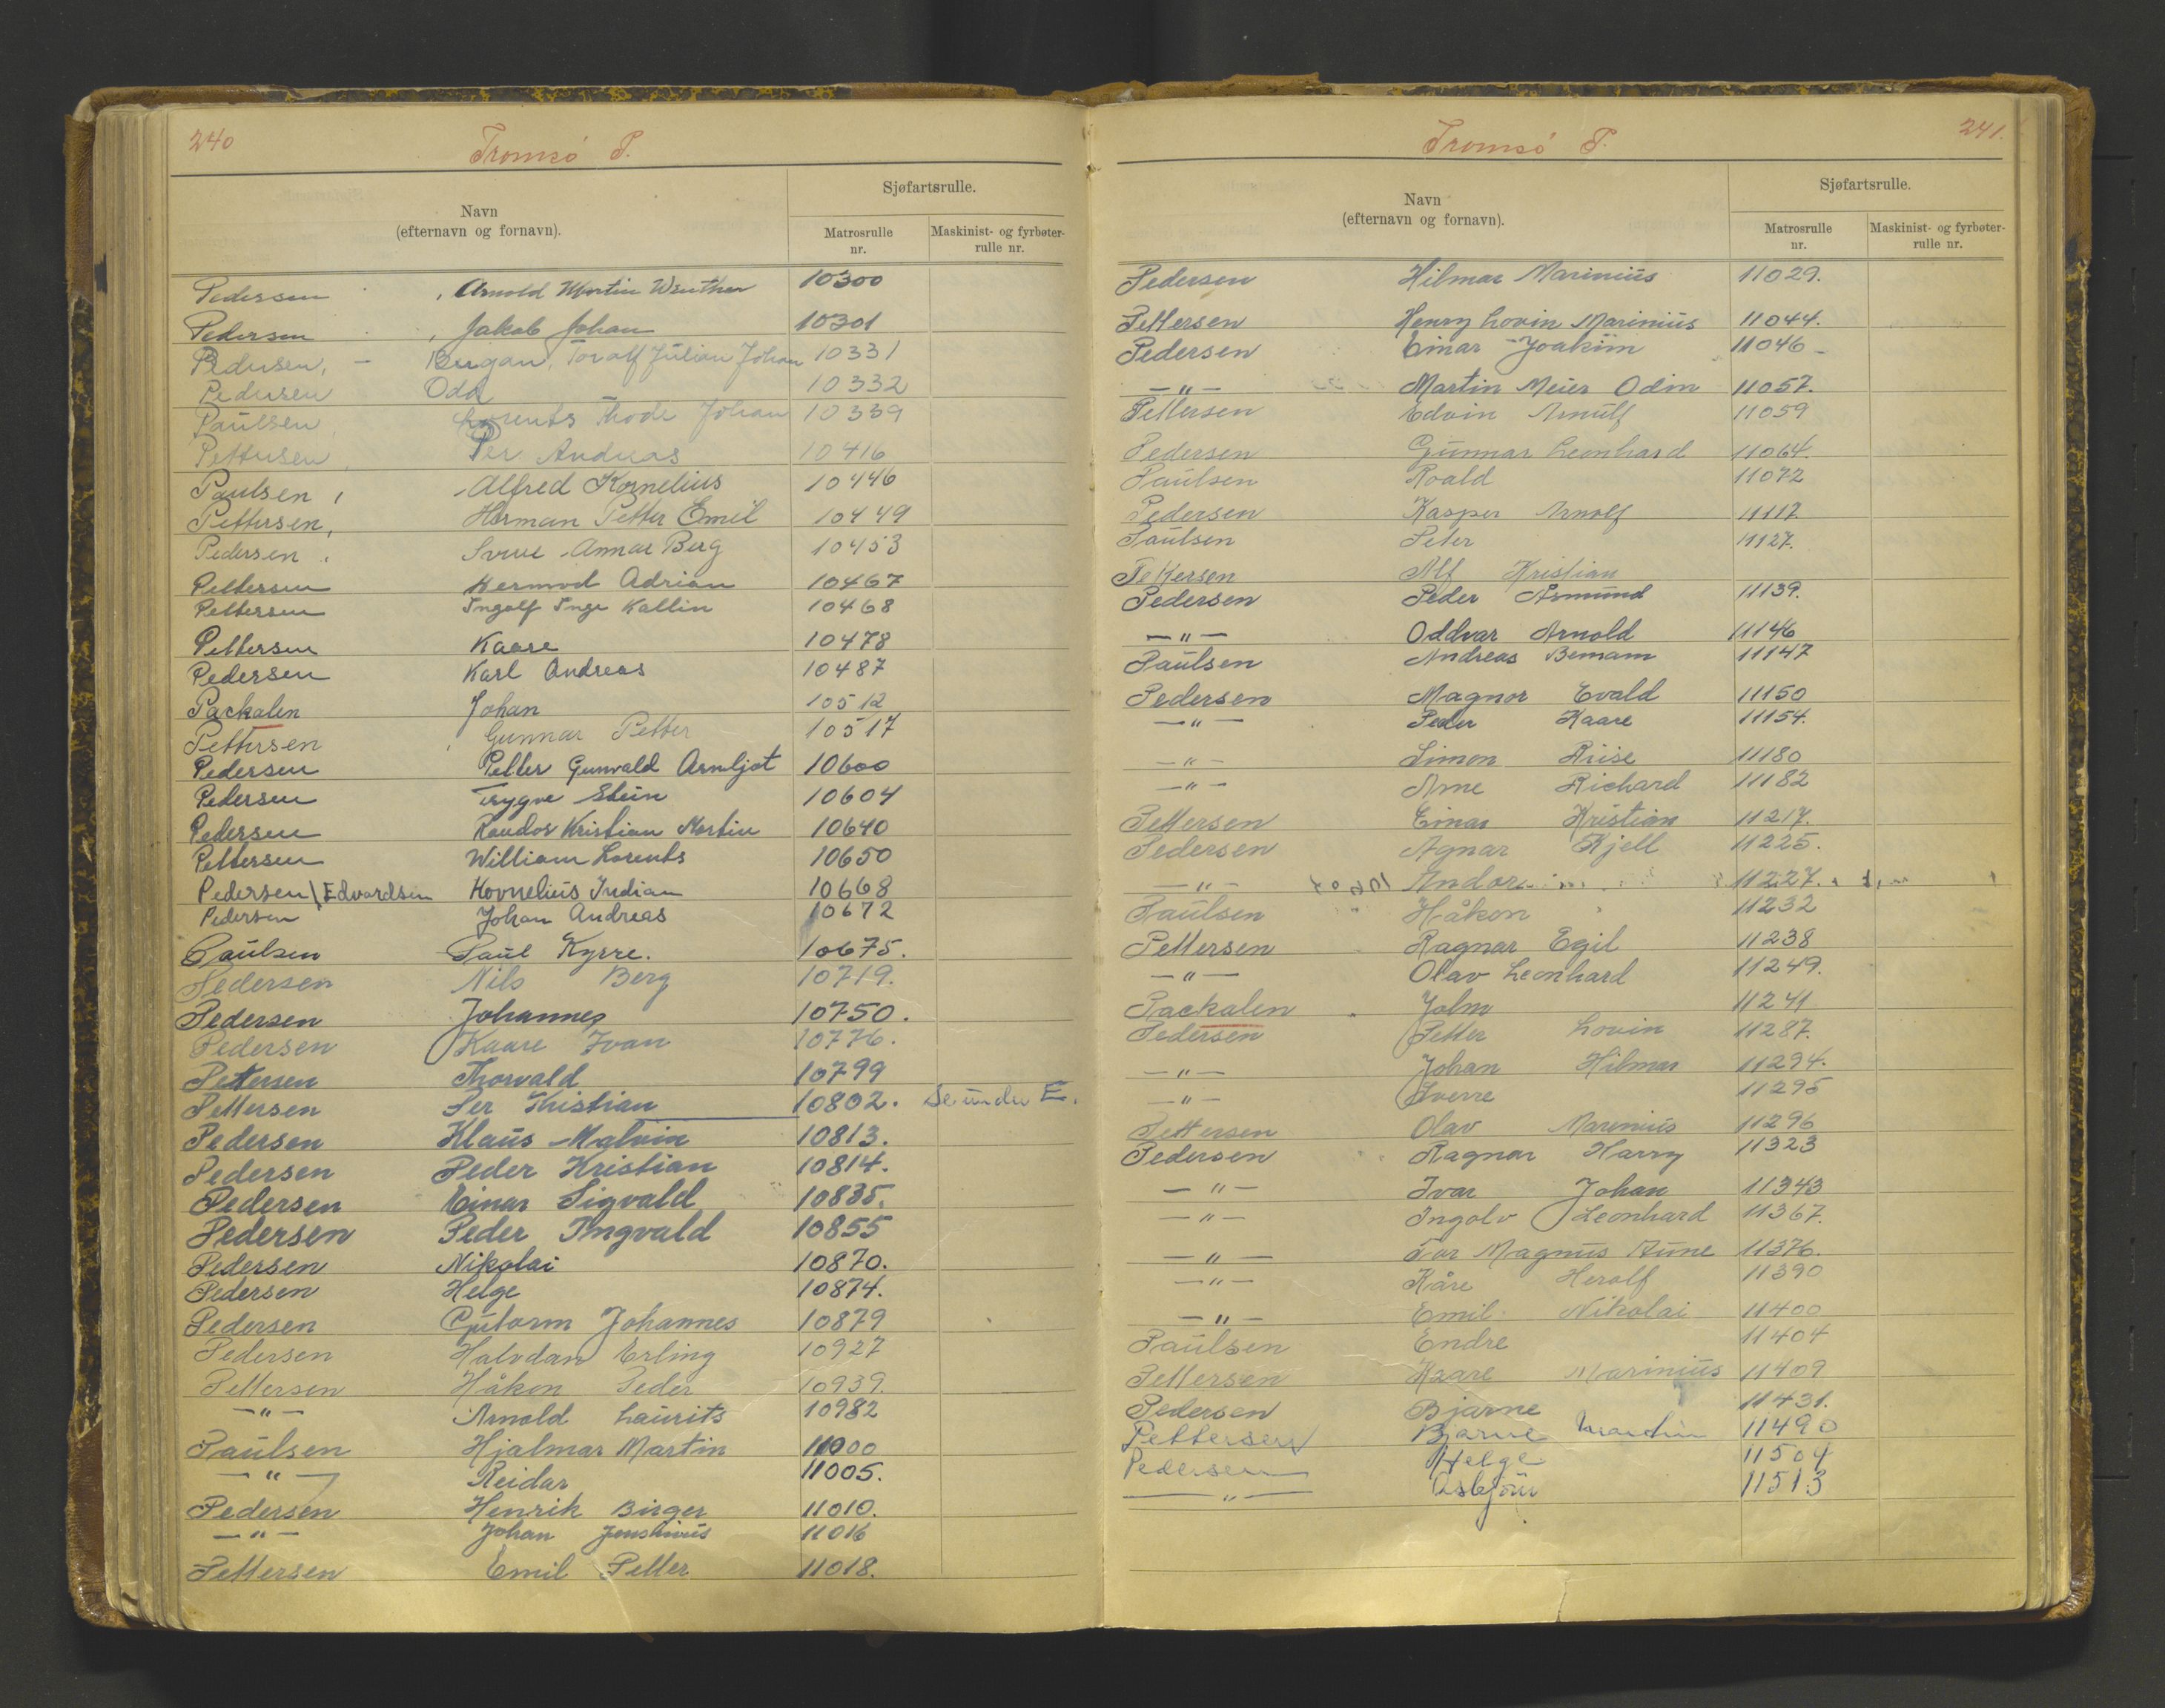 240
Tromsö P.
Navn
(efternavn og fornavn).
Sjøfartsrulle.
Matrosrulle
nr.
Maskinist- og fyrbøter-
rulle nr.
Pedersen , Arnold Martin 10300
Pedersen , Jakob Johan 10301
Pedersen, - Bergan, Toralf Julian Johan 10331
Pedersen Odd 10332
Paulsen Lorents Thode Johan 10339
Pettersen, Per Andreas 10416
Paulsen, Alfred Kornelius 10446
Pettersen, Herman Petter Emil 10449
Pedersen, Sverre Annar Berg 10453
Pettersen Hermod Adrian 10467
Pettersen Ingolf Inge Kallin 10468
Pettersen Kaare 10478
Pedersen Karl Andreas 10487
Packalen Johan 10512
Pettersen Gunnar Petter 10517
Pedersen Petter Gunvald Arnljot 10600
Pedersen Trygve Stein 10604
Pedersen Kristian Martin 10640
Pettersen William Lorents 10650
Pedersen\Edvardsen Kornelius Indian 10668
Pedersen Johan Andreas 10672
Paulsen Paul Kyrre. 10675.
Pedersen Nils Berg 10719.
Pedersen Johannes 10750.
Pedersen Kaare Ivan 10776.
Pettersen Thorvald 10799
Pettersen Per Kristian 10802. Se under E.
Pedersen Klaus Malvin 10813.
Pedersen Peder Kristian 10814.
Pedersen Einar Sigvald 10835.
Pedersen Peder Ingvald 10855
Pedersen Nikolai 10870.
Pedersen Helge 10874.
Pedersen Gutorm Johannes 10879
Pedersen Halvdan Erling 10927
Pettersen Håkon Peder 10939.
—"— Arnold Laurits 10982
Paulsen Hjalmar Martin 11000
—"— Reidar 11005.
Pedersen Henrik Birger 11010.
—"— Johan 11016
Pettersen Emil Petter 11018.
241.
Tromsö P.
Navn
(efternavn og fornavn).
Sjøfartsrulle.
Matrosrulle
nr.
Maskinist- og fyrbøter-
rulle nr.
Pedersen Hilmar Marinius 11029.
Pettersen Henry Lovin Marinius 11044.
Pedersen Einar Joakim 11046
—"— Martin Meier Odin 11057.
Pettersen Edvin Arnulf 11059
Pedersen Gunnar Leonhard 11064.
Paulsen Roald 11072
Pedersen Kasper Arnolf 11117.
Paulsen Peter 11127.
Pettersen Alf Kristian
Pedersen Peder Åsmund 11139.
—"— Oddvar Arnold 11146
Paulsen Andreas 11147
Pedersen Magnor Evald 11150
—"— Peder Kaare 11154.
—"— Simon Riise 11180
—"— Arne Richard 11182
Pettersen Einar Kristian 11217.
Pedersen Agnar Kjell 11225.
—"— Andor 11227.
Paulsen Håkon 11232
Pettersen Ragnar Egil 11238
—"— Olav Leonhard 11249.
Packalen John 11241
Pedersen Petter Lovin 11287.
—"— Johan Hilmar 11294.
—"— Sverre 11295
Pettersen Olav Marinius 11296
Pedersen Ragnar Harry 11323
—"— Ivar Johan 11343
—"— Ingolv Leonhard 11367.
—"— Tor Magnus Aune 11376.
—"— Kåre Herolf 11390
—"— Emil Nikolai 11400
Paulsen Endre 11404
Pettersen Kaare Marinius 11409
Pedersen Bjarne 11431.
Pettersen Bjarne 11490
Pedersen Helge 11504
—"— Asbjörn 11513